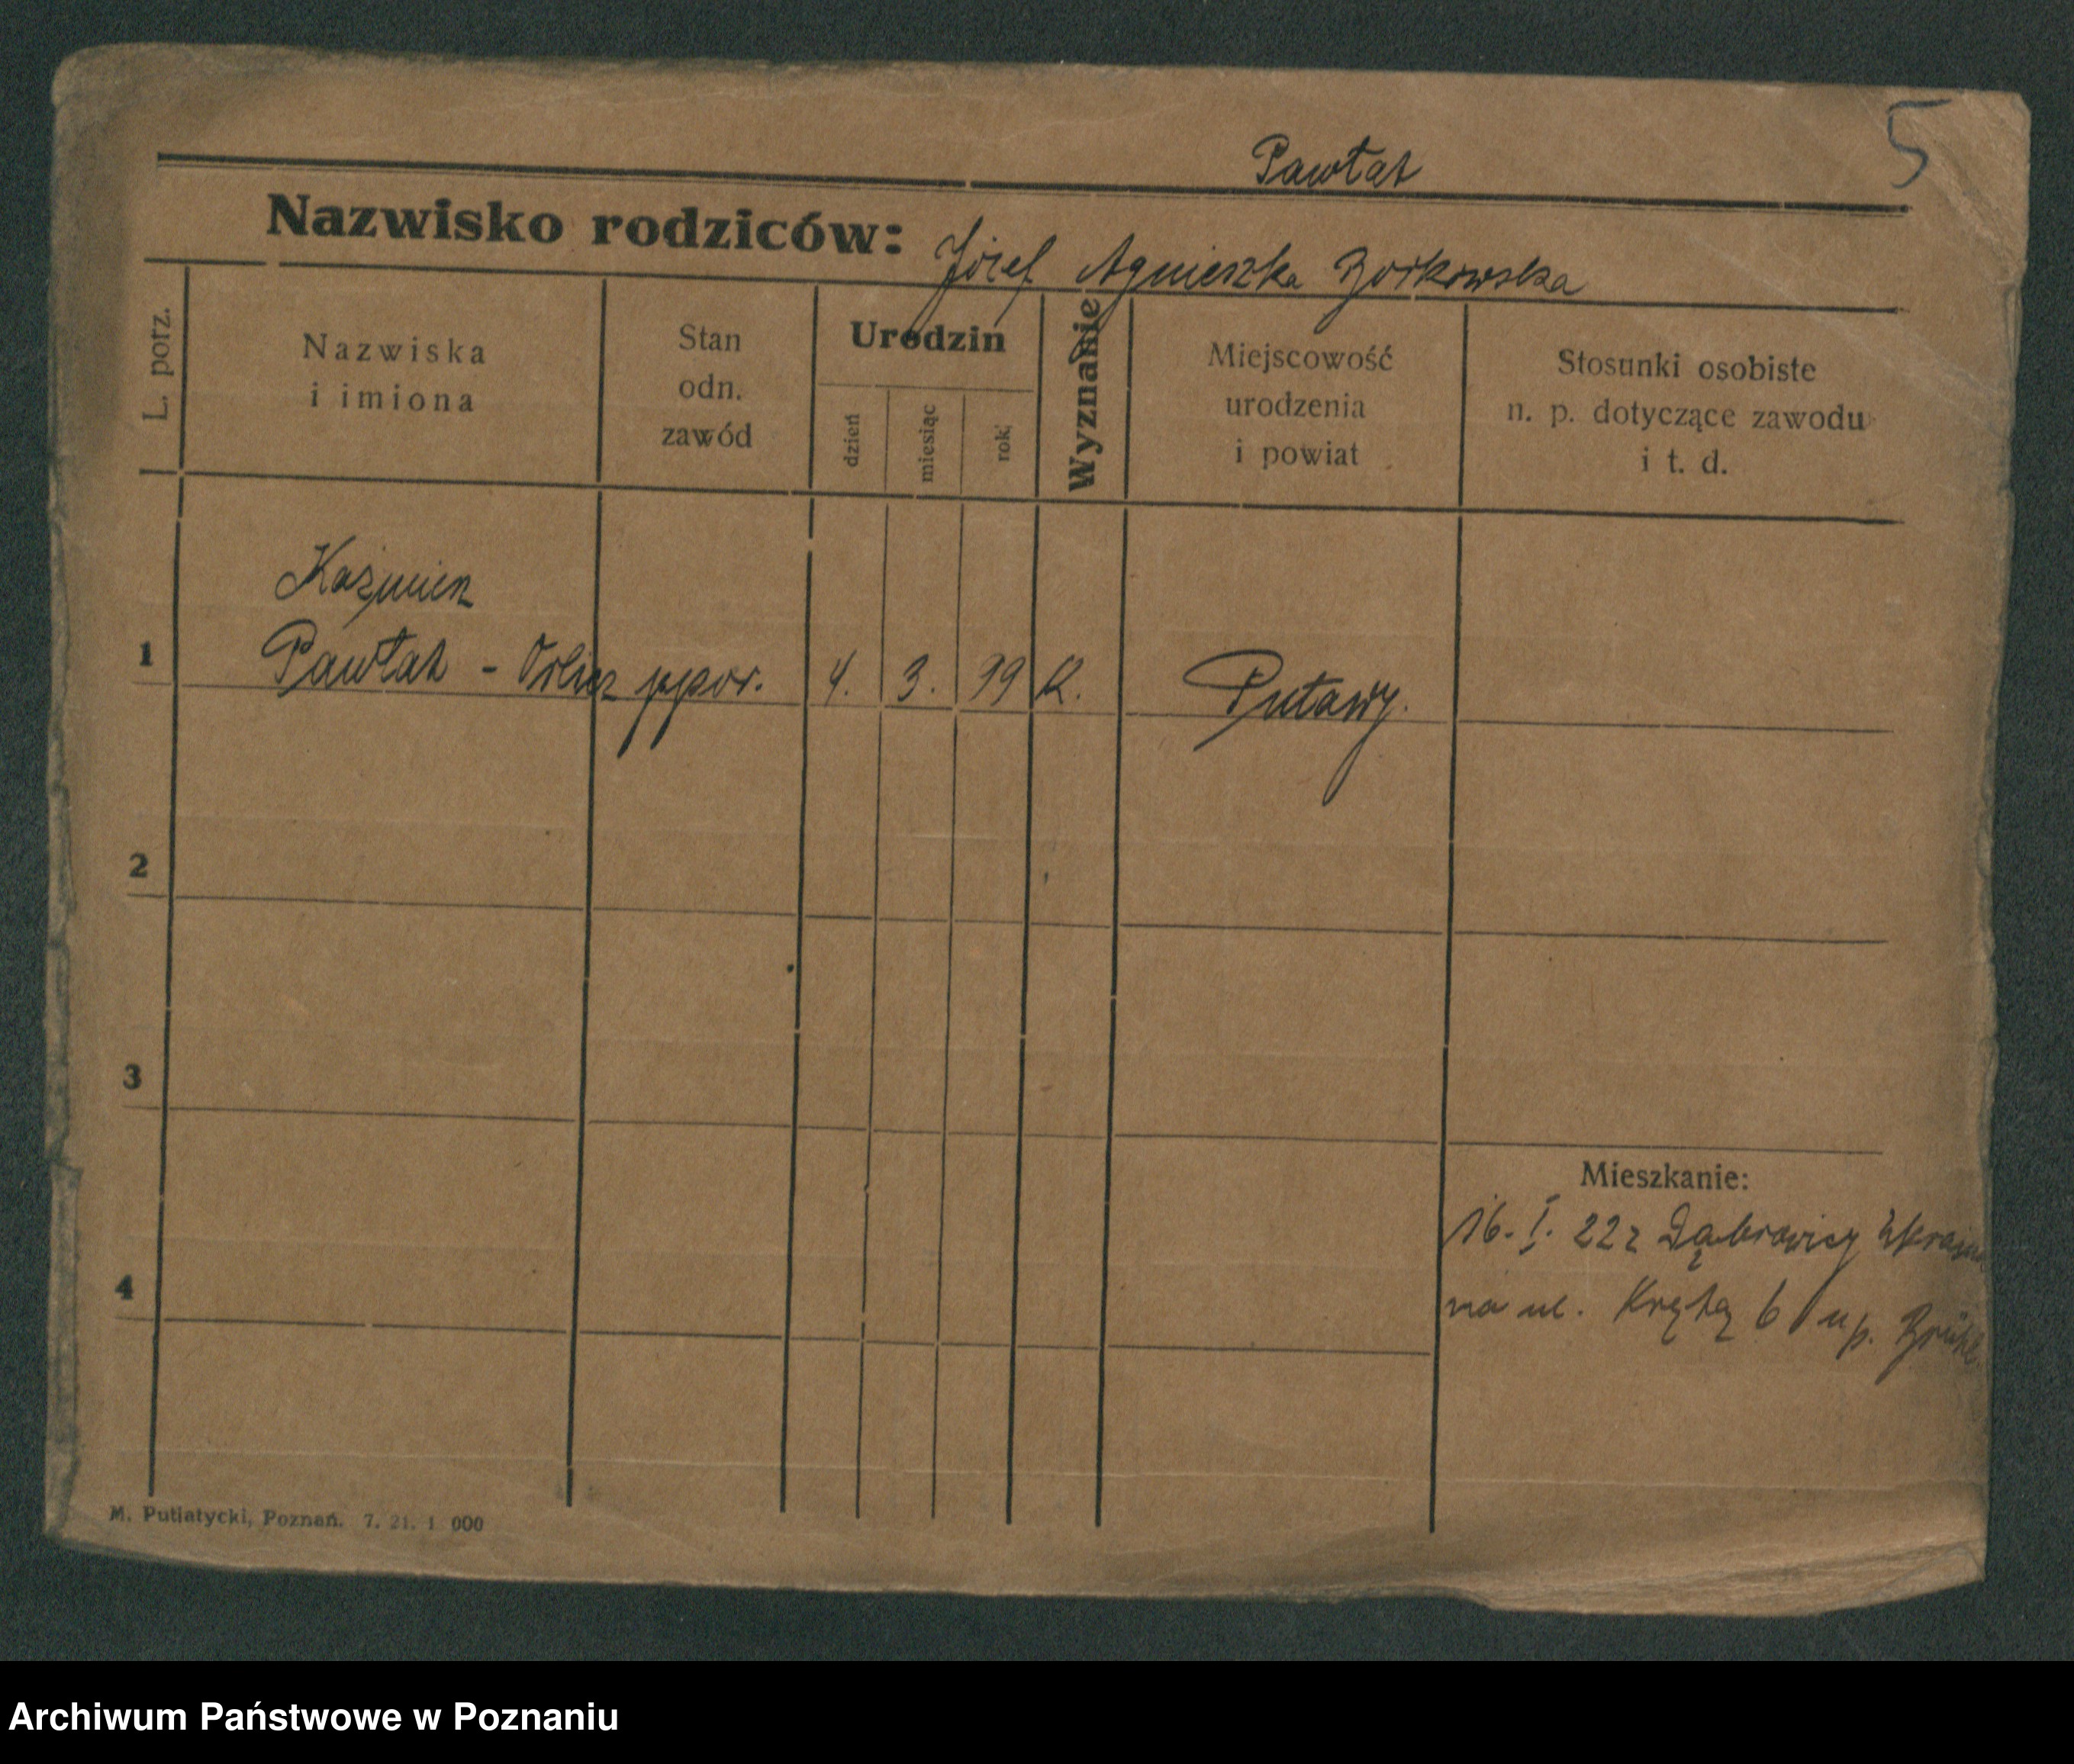 5
Pawłat
Nazwisko rodziców: Józef Agnieszka Borkowska
L. porz.
Nazwiska
i imiona
Stan
odn.
zawód
Urodzin
dzień
miesiąc
rok
Wyznanie
Miejscowość
urodzenia
i powiat
Stosunki osobiste
n. p. dotyczące zawodu
i t. d.
Kaźmierz
1 Pawłat - Orlicz ppor. 4. 3. 99 K. Puławy.
2
3
4
Mieszkanie:
16. I. 22 z Dąbrowicy
na ul. Krętą 6 u p.
M. Putiatycki, Poznań. 7. 21. 1 000
Archiwum Państwowe w Poznaniu